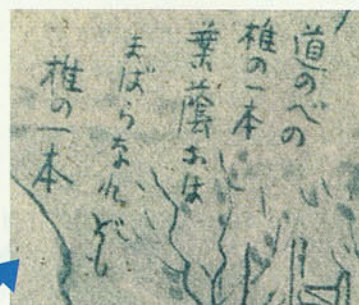 道のべの
椎の一本
葉蔭おほ
まばらなれども
椎の一本